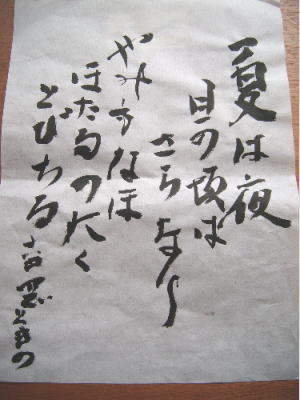 夏は夜
月の頃は
さらなり
やみもなほ
ほたるのたく
とびちる